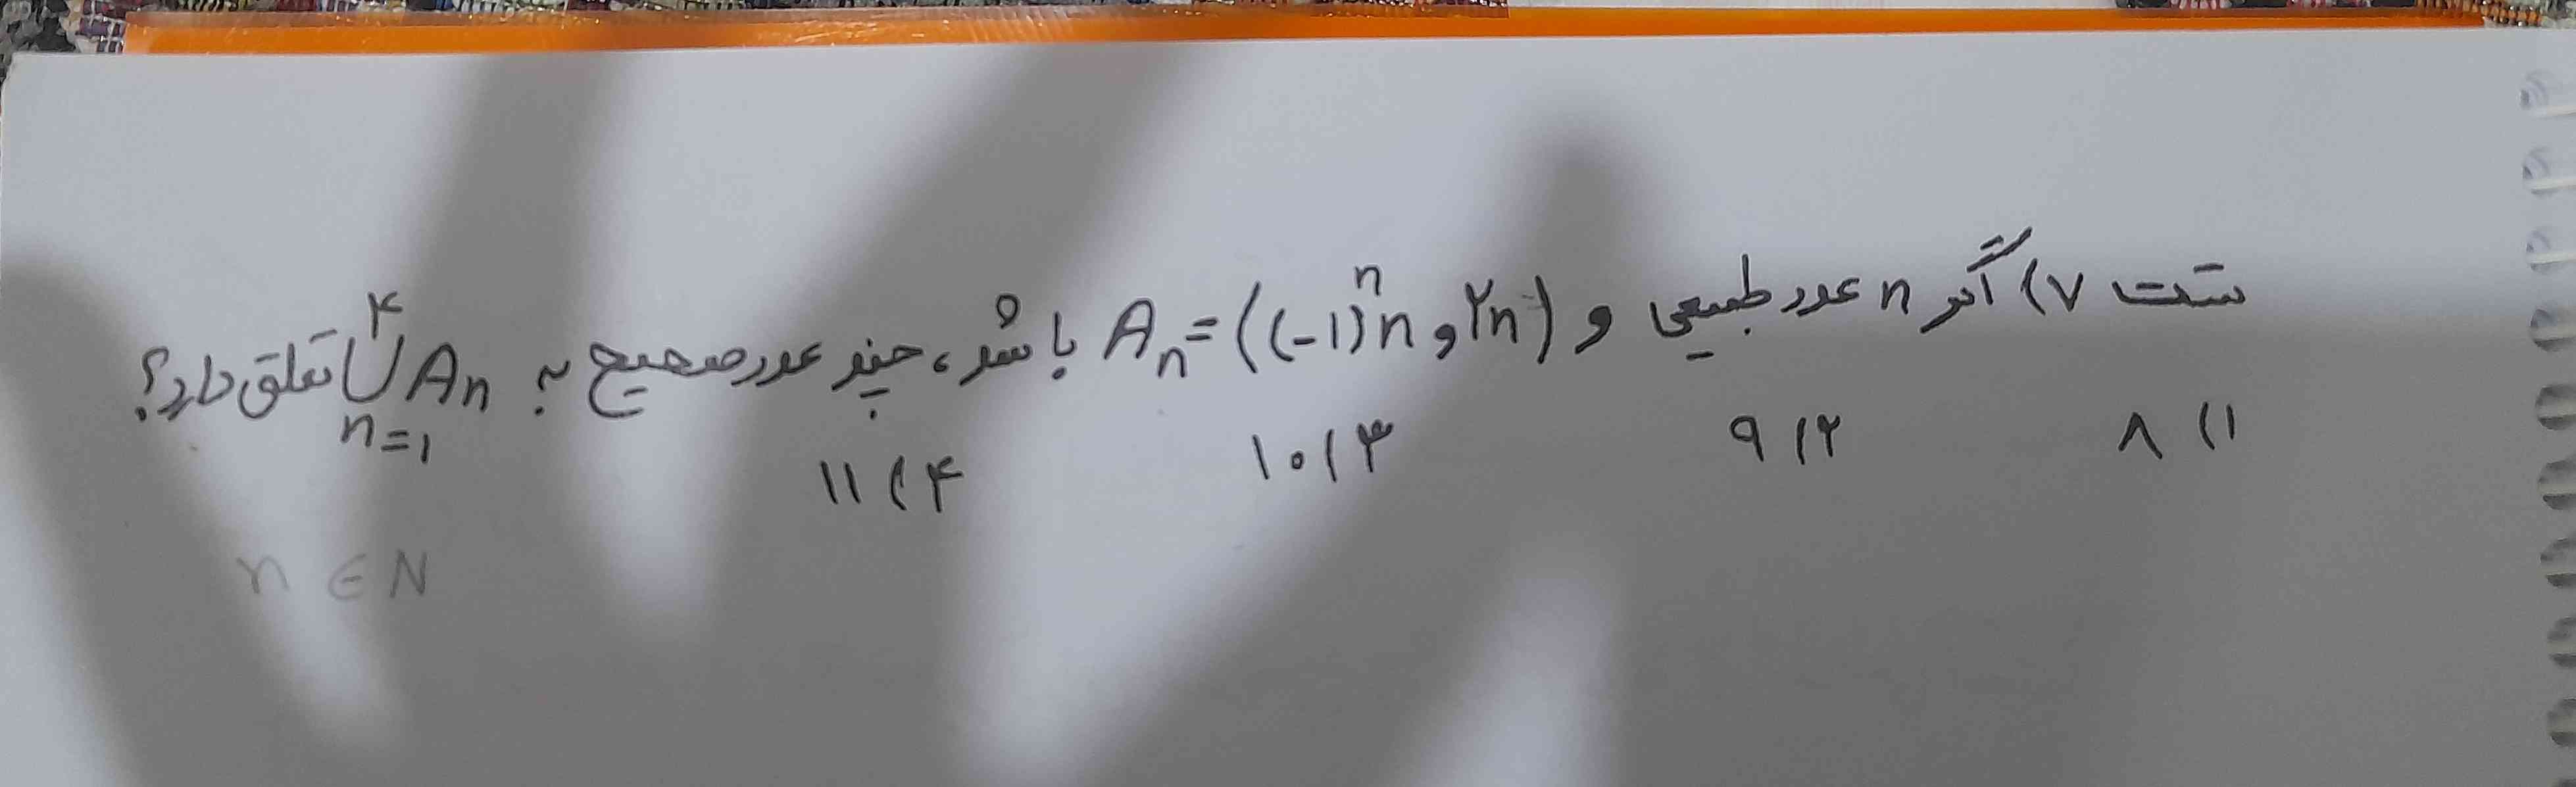 تست ۷) اگر n عدد طبیعی و A_n = ((-1)^n n و ۲n) باشد، چند عدد صحیح به ⋃_{n=1}^{۴} A_n تعلق دارد؟
۱) ۸ ۲) ۹ ۳) ۱۰ ۴) ۱۱
n ∈ N